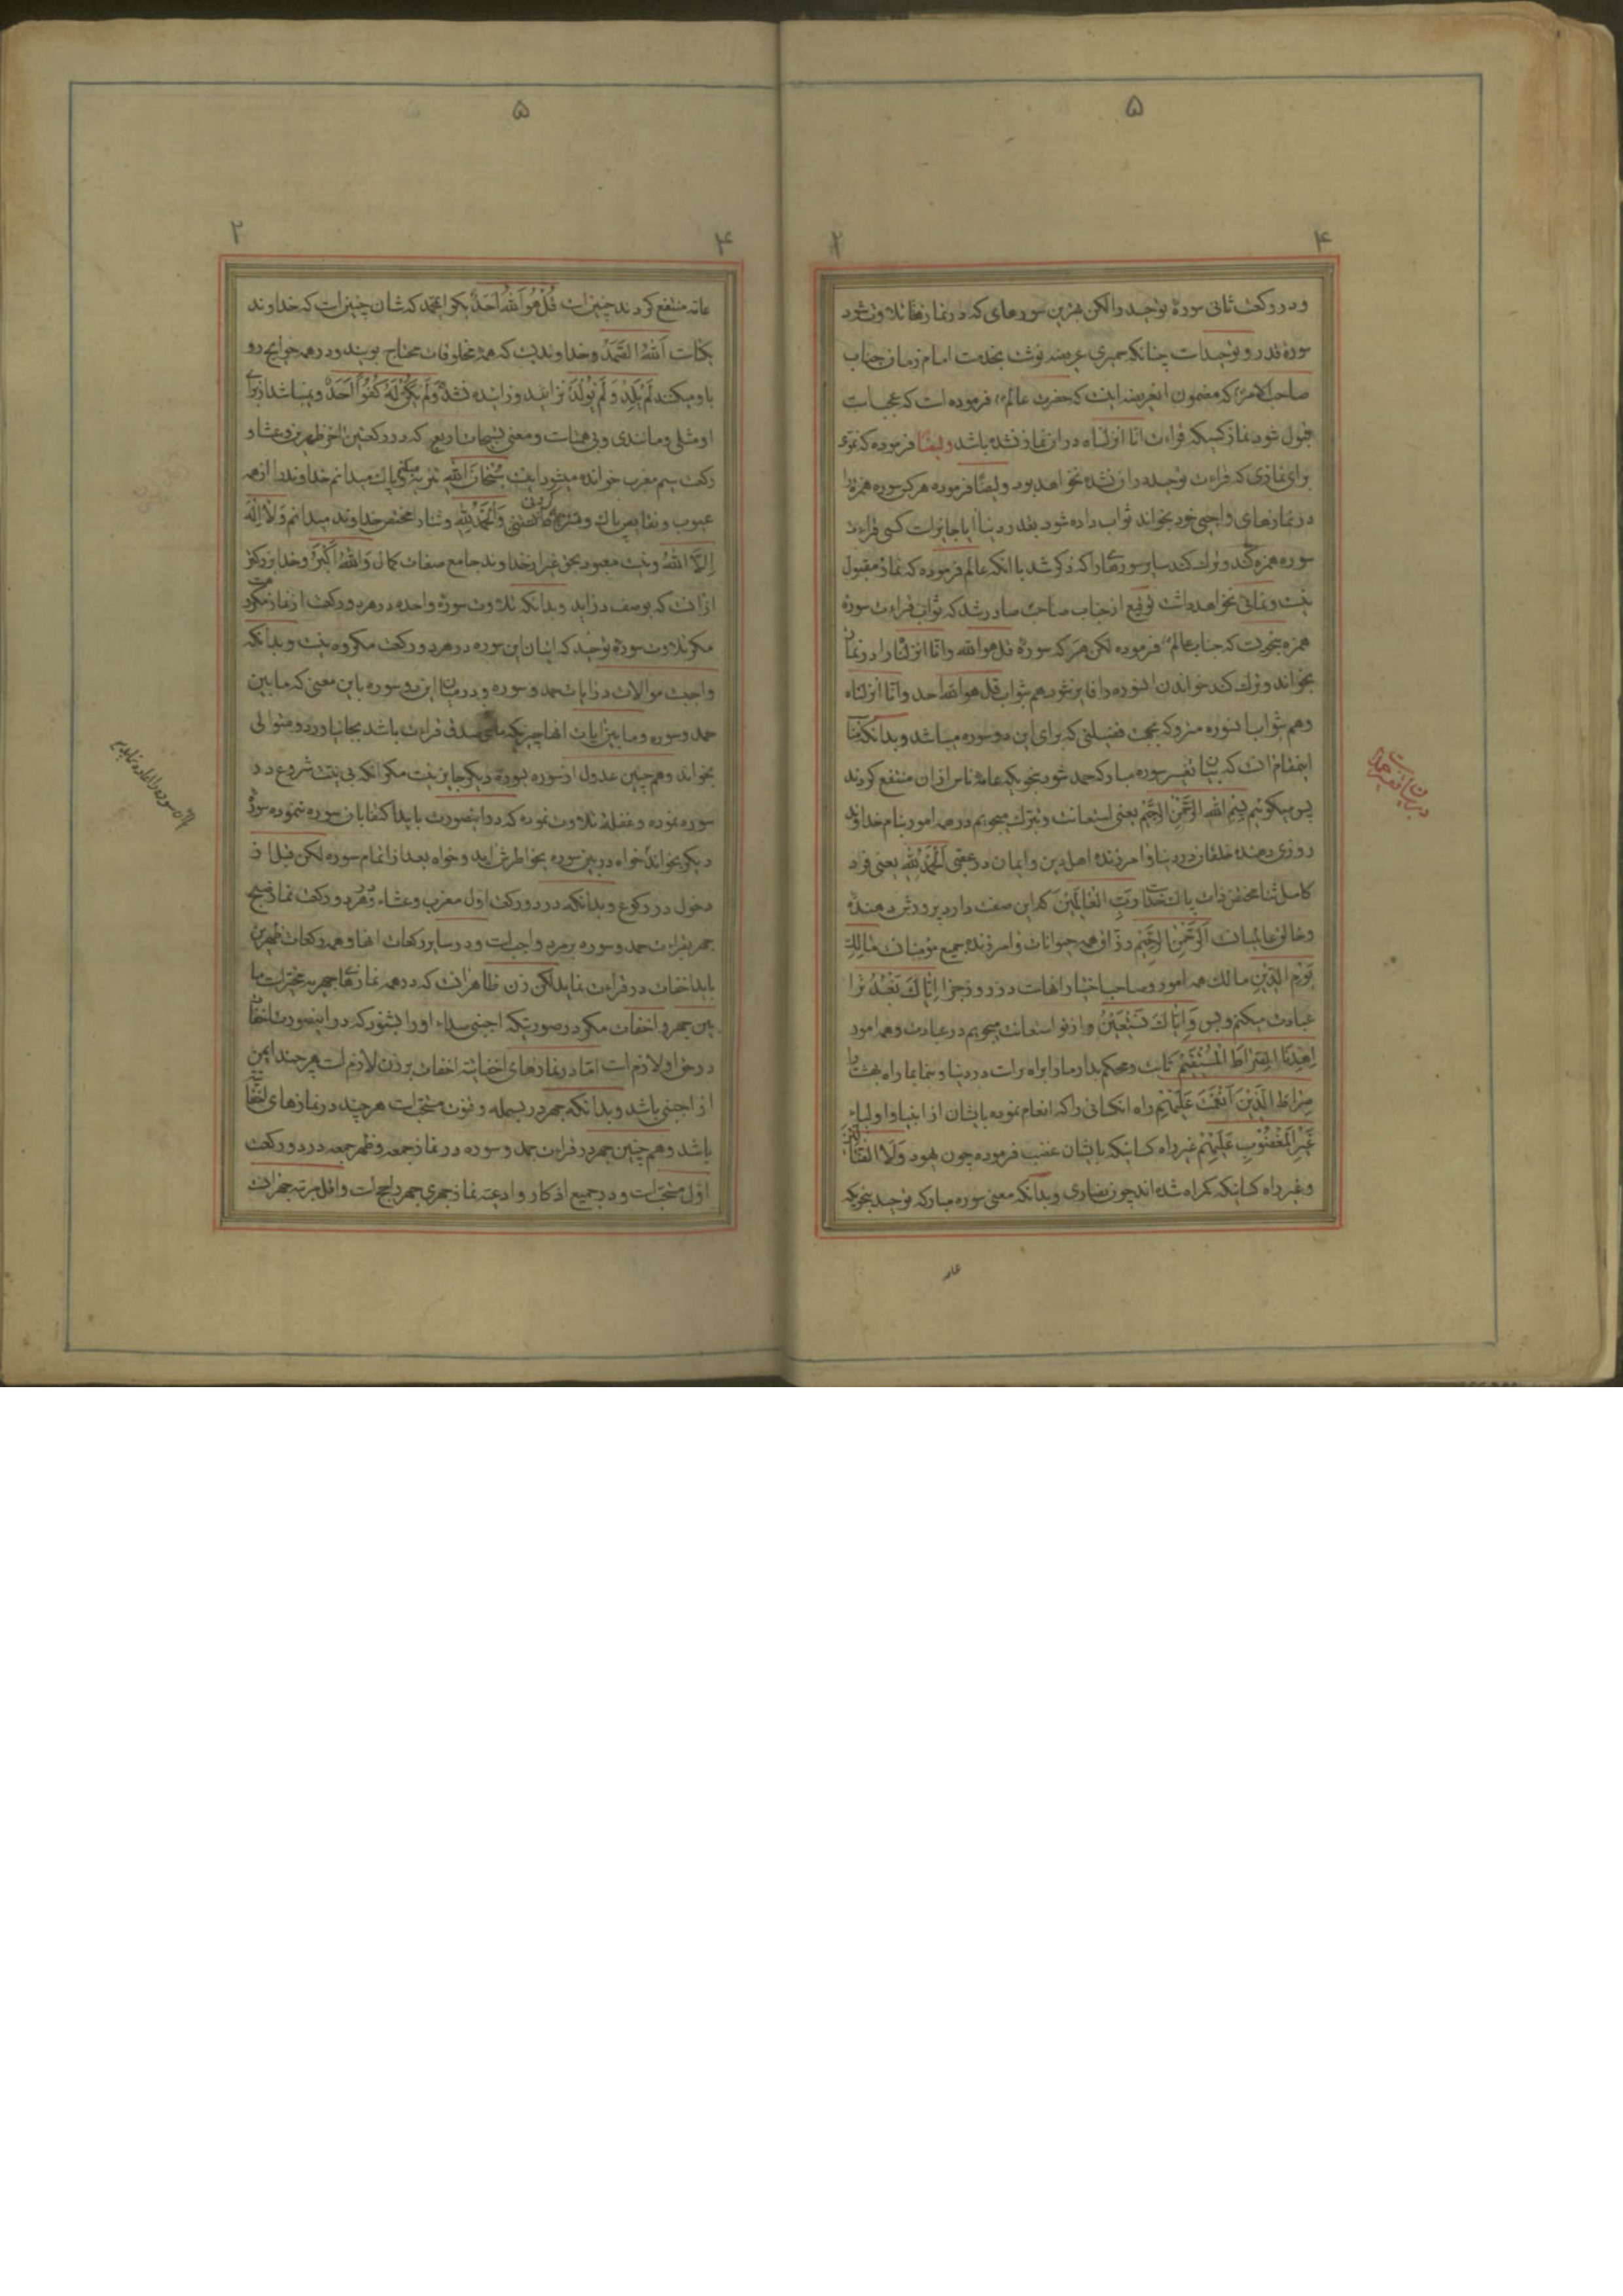 ۵
۴
۲
و در رکعت ثانی سورهٔ توحید را لکن بهترین سورهای که در نمازها تلاوت شود
سورهٔ قدر و توحیدست چنانکه حمیری عریضه نوشت بخدمت امام زمان جناب
صاحب الامر که مضمون انعریضه اینست که حضرت عالم فرموده است که عجب است
قبول شود نماز کسیکه قراءت انا انزلناه در ان نماز نشده باشد و ایضا فرموده که
برای نمازی که قراءت توحید در ان نشده نخواهد بود و ایضا فرموده هر کس سوره همزه را
در نمازهای واجبی خود بخواند ثواب داده شود بقدر دنیا ایا جایز است کسی قراءت
سوره همزه کند و ترک کند سایر سورهها را که ذکر شد با انکه عالم فرموده که نماز مقبول
نیست و نمائی نخواهد داشت توقیع از جناب صاحب صادر شد که ثواب قراءت سورهٔ
همزه بنحویست که جناب عالم فرموده لکن هر که سورهٔ قل هو الله و انا انزلناه را در نماز
بخواند و ترک کند خواندن انسوره را فایز شود هم بثواب قل هو الله احد و انا انزلناه
و هم بثواب انسوره متروکه بجهت فضیلتی که برای این دو سوره میباشد و بدانکه
اینمقام انست که بیان تفسیر سوره مبارکه حمد شود بنحویکه عامهٔ ناس از ان منتفع گردند
پس میگوئیم بِسْمِ اللهِ الرَّحْمٰنِ الرَّحیٖمِ یعنی استعانت و تبرک میجویم در همه امور بنام خداوند
روزی دهنده خلقان در دنیا و امرزنده اهل دین و ایمان در عقبی اَلْحَمْدُ لِلّٰهِ یعنی فرد
کامل ثنا مختص ذات پاک خداست رَبِّ الْعٰالَمیٖنَ که این صفت دارد پرورش دهندهٔ
و خالق عالمیانست اَلرَّحْمٰنِ الرَّحیٖمِ رزّاق همه حیوانات و امرزندهٔ جمیع مؤمنان مٰالِكِ
یَوْمِ الدّیٖنِ مالک همه امور و صاحب اختیار انهاست در روز جزا اِیّٰاكَ نَعْبُدُ ترا
عبادت میکنم و بس وَ اِیّٰاكَ نَسْتَعیٖنُ و از تو استعانت میجویم در عبادت و همه امور
اِهْدِنَا الصِّرٰاطَ الْمُسْتَقیٖمَ ثابت و محکم بدار ما را براه راست در دنیا و بنما بما راه بهشت را
صِرٰاطَ الَّذیٖنَ اَنْعَمْتَ عَلَیْهِمْ راه انکسانی را که انعام نموده بایشان از انبیا و اولیاء
غَیْرِ الْمَغْضُوبِ عَلَیْهِمْ غیر راه کسانیکه بایشان غضب فرموده چون یهود وَ لَا الضّٰالّیٖنَ
و غیر راه کسانیکه گمراه شده اند چون نصاری و بدانکه معنی سوره مبارکه توحید بنحویکه
عامه
۵
۴
۲
عامه منتفع گردند چنین است قُلْ هُوَ اللهُ اَحَدٌ بگو ای محمد که شان چنین است که خداوند
یکتاست اَللهُ الصَّمَدُ و خداوندیست که همهٔ مخلوقات محتاج بویند و در همه حوایج رو
باو میکنند لَمْ یَلِدْ وَ لَمْ یُولَدْ نزائیده و زائیده نشده وَ لَمْ یَكُنْ لَهُ كُفُواً اَحَدٌ و نمیباشد از برای
او مثلی و مانندی و بی همتاست و معنی تسبیحات اربع که در رکعتین اخر ظهرین و عشا و
رکعت سیم مغرب خوانده میشود اینست سُبْحٰانَ اللهِ تنزیه و پاک میدانم خداوند را از همه
عیوب و نقایص وَ الْحَمْدُ لِلّٰهِ و ثنا را مختص خداوند میدانم وَ لٰا اِلٰهَ
اِلَّا اللهُ و نیست معبود بحق غیر از خداوند جامع صفات کمال وَ اللهُ اَكْبَرُ و خدا بزرگتر
از انست که بوصف در اید و بدانکه تلاوت سورهٔ واحده در هر دو رکعت از نماز مکروهست
مگر تلاوت سورهٔ توحید که اتیان این سوره در هر دو رکعت مکروه نیست و بدانکه
واجبست موالات در ایات حمد و سوره و در میان این دو سوره باین معنی که مابین
حمد و سوره و مابین ایات انها چیزیکه صدق قراءت باشد بجا نیاورد و متوالی
بخواند و هم چنین عدول از سوره بسورهٔ دیگر جایز نیست مگر انکه بی نیت شروع در
سوره نموده و غفلةً تلاوت نموده که در اینصورت باید اکتفا بان سوره ننموده سورهٔ
دیگر بخواند خواه در بین سوره بخواطرش اید و خواه بعد از اتمام سوره لکن قبل از
دخول در رکوع و بدانکه در دو رکعت اول مغرب و عشاء و در هر دو رکعت نماز صبح
جهر بقراءت حمد و سوره بر مرد واجبست و در سایر رکعات انها و همه رکعات ظهرین
باید اخفات در قراءت نماید لکن زن ظاهر انست که در همه نمازهای جهریه مخیّر است ما
بین جهر و اخفات مگر در صورتیکه اجنبی صداء او را بشنود که در اینصورت اخفات
در حق او لازم است اما در نمازهای اخفاتیّه اخفات بر زن لازم است هر چند ایمن
از اجنبی باشد و بدانکه جهر در بسمله و قنوت مستحبّست هر چند در نمازهای اخفاتیه
باشد و هم چنین جهر در قراءت حمد و سوره در نماز جمعه و ظهر جمعه در دو رکعت
اول مستحبّست و در جمیع اذکار و ادعیه نماز جهری جهر راجحست و اقل مرتبه جهر انست